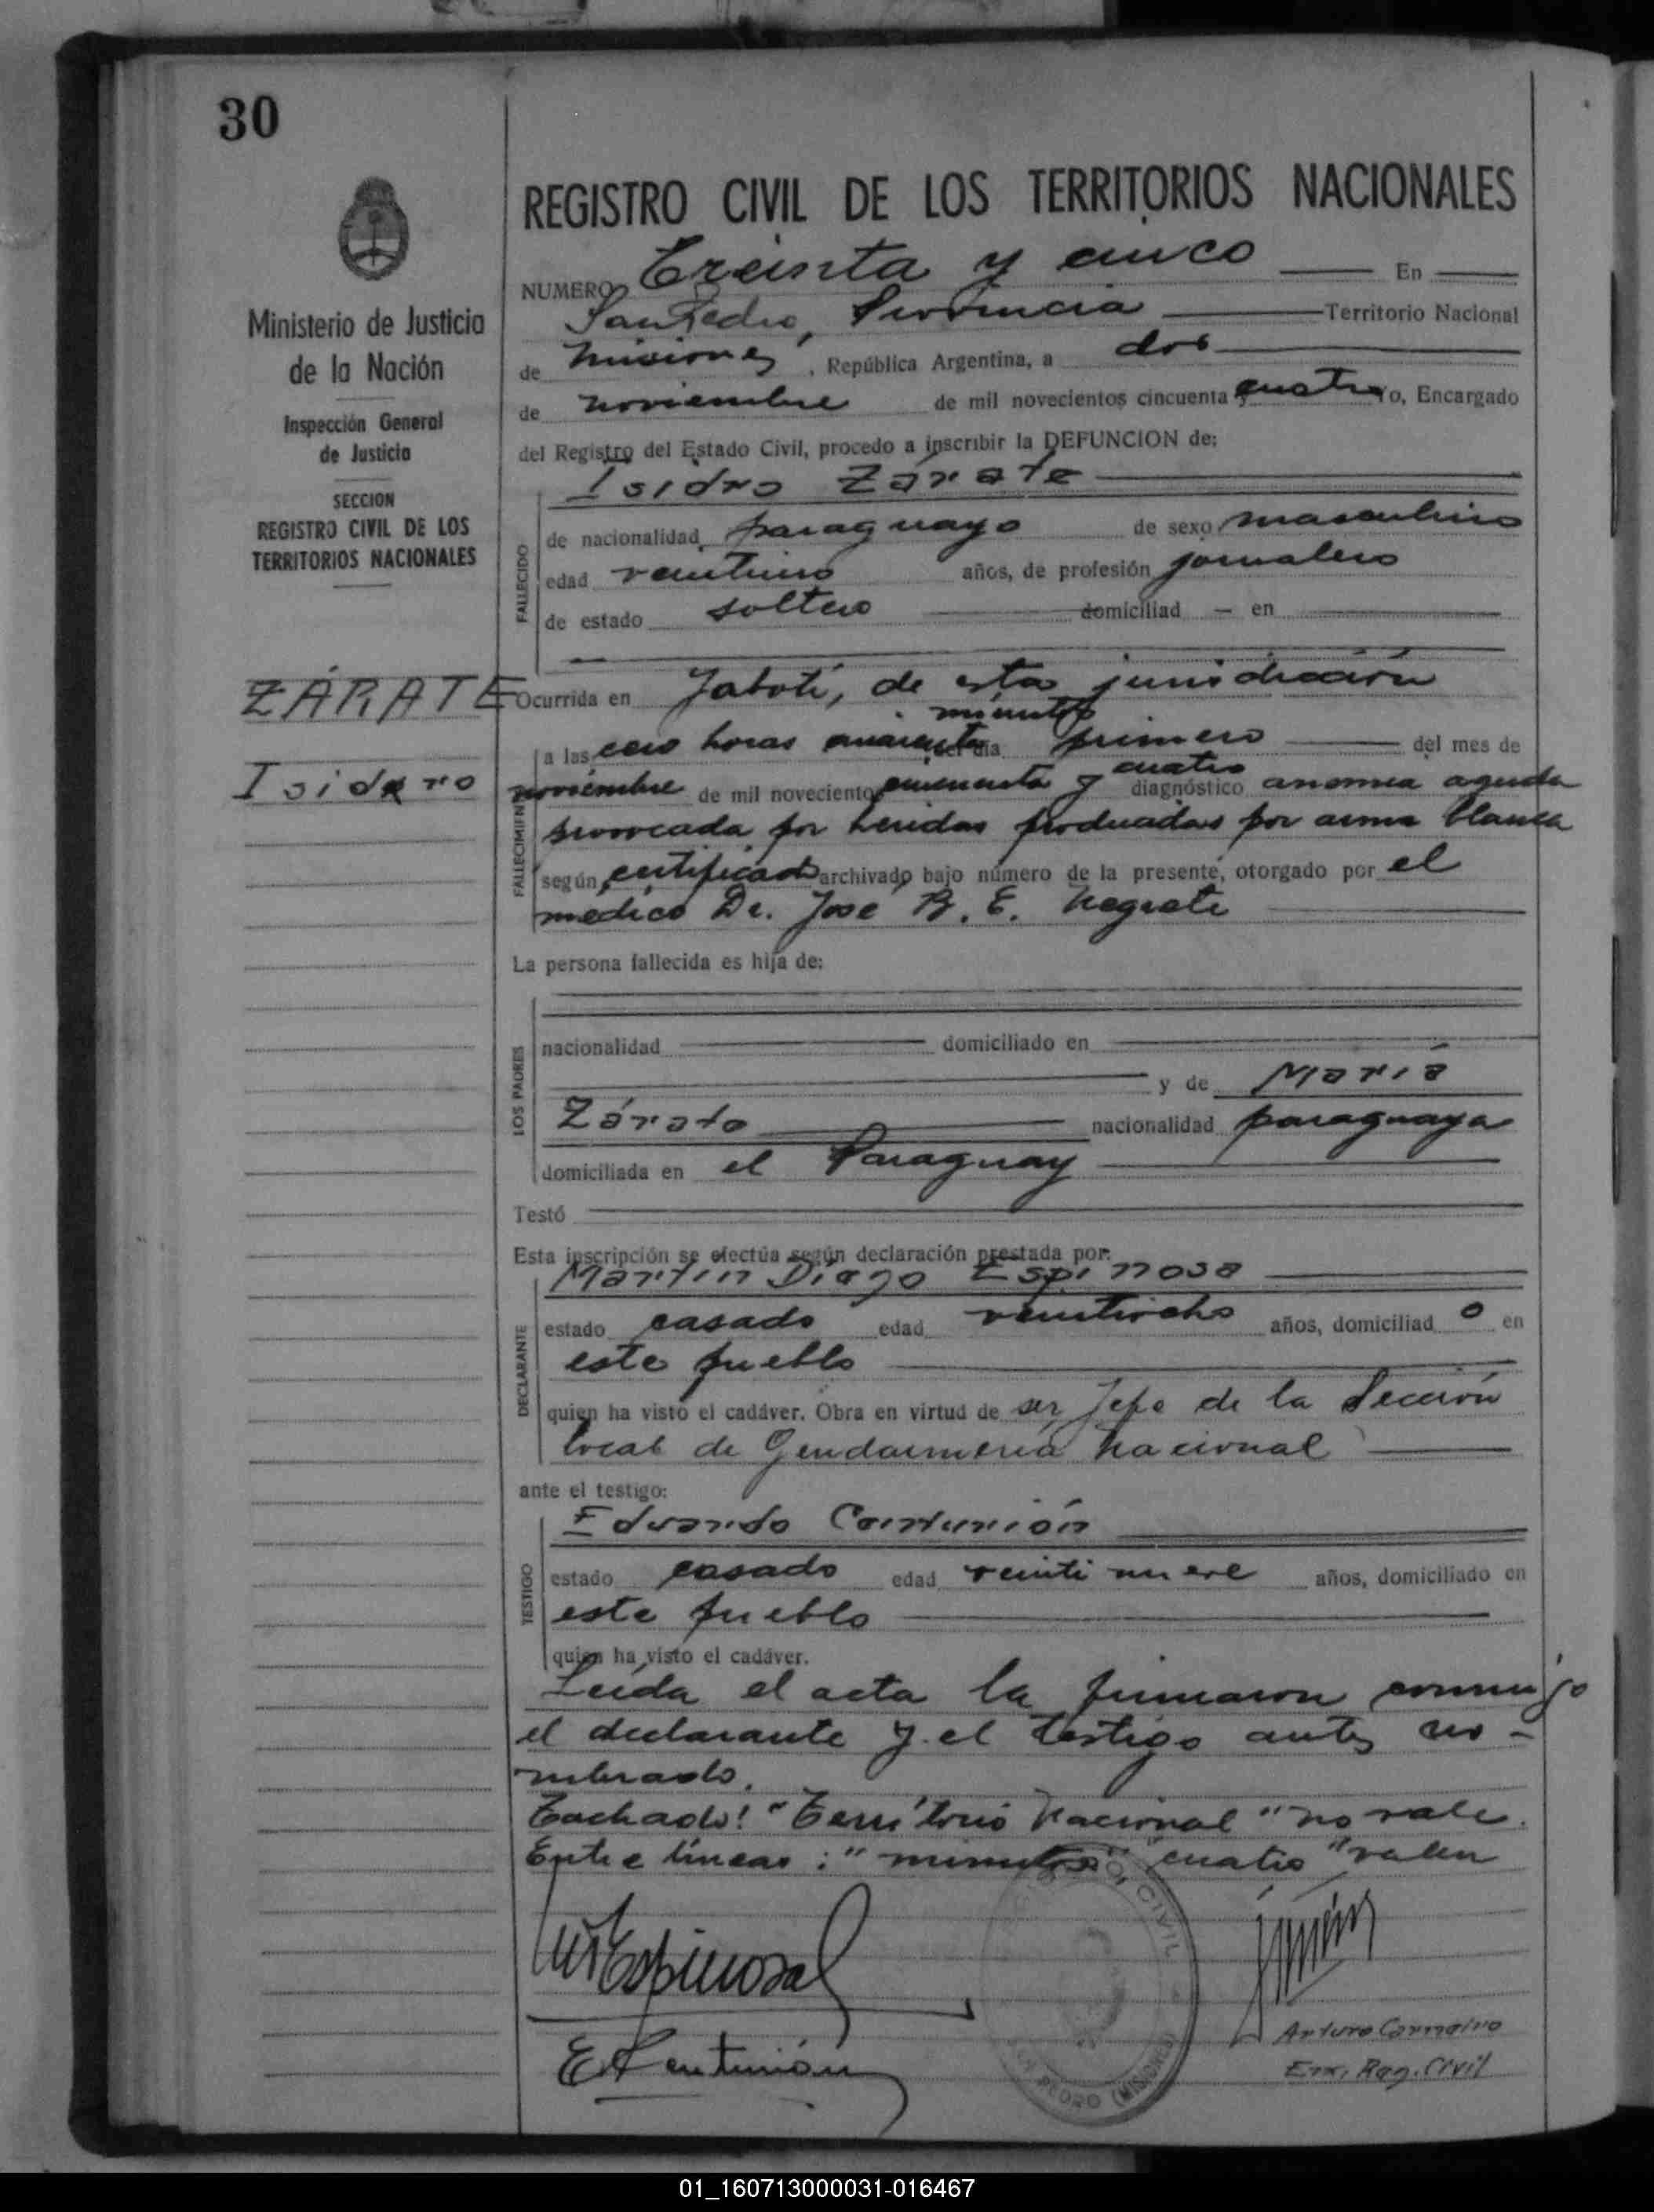 30
Ministerio de Justicia
de la Nación
Inspección General
de Justicia
SECCION
REGISTRO CIVIL DE LOS
TERRITORIOS NACIONALES
ZÁRATE
Isidro
REGISTRO CIVIL DE LOS TERRITORIOS NACIONALES
NUMERO Treinta y cinco En
San Pedro, Provincia Territorio Nacional
de Misiones, República Argentina, a dos
de noviembre de mil novecientos cincuenta y cuatro yo, Encargado
del Registro del Estado Civil, procedo a inscribir la DEFUNCION de:
Isidro Zárate
FALLECIDO
de nacionalidad paraguayo de sexo masculino
edad veintiuno años, de profesión jornalero
de estado soltero domiciliad en
Ocurrida en Jaboti, de esta jurisdicción
minutos
a las cero horas cuarenta del día primero del mes de
cuatro
noviembre de mil novecientos cincuenta y diagnóstico anemia aguda
FALLECIMIENTO
provocada por heridas producidas por arma blanca
según certificado archivado bajo número de la presente, otorgado por el
médico Dr. José B. E. Negrete
La persona fallecida es hija de:
LOS PADRES
nacionalidad domiciliado en
y de María
Zárate nacionalidad paraguaya
domiciliada en el Paraguay
Testó
Esta inscripción se efectúa según declaración prestada por:
Martín Diego Espinosa
DECLARANTE
estado casado edad veintiocho años, domiciliado en
este pueblo
quien ha visto el cadáver. Obra en virtud de ser Jefe de la Sección
local de Gendarmería Nacional
ante el testigo:
Eduardo Centurión
TESTIGO
estado casado edad veintinueve años, domiciliado en
este pueblo
quien ha visto el cadáver.
Leída el acta la firmaron conmigo
el declarante y el testigo antes no-
mbrado.
Tachado: "Territorio Nacional" no vale.
Entre líneas: "minutos", "cuatro" valen
Espinosa
E Centurión
CIVIL
SAN PEDRO (MISIONES)
Arturo
Enc. Reg. Civil
01_160713000031-016467